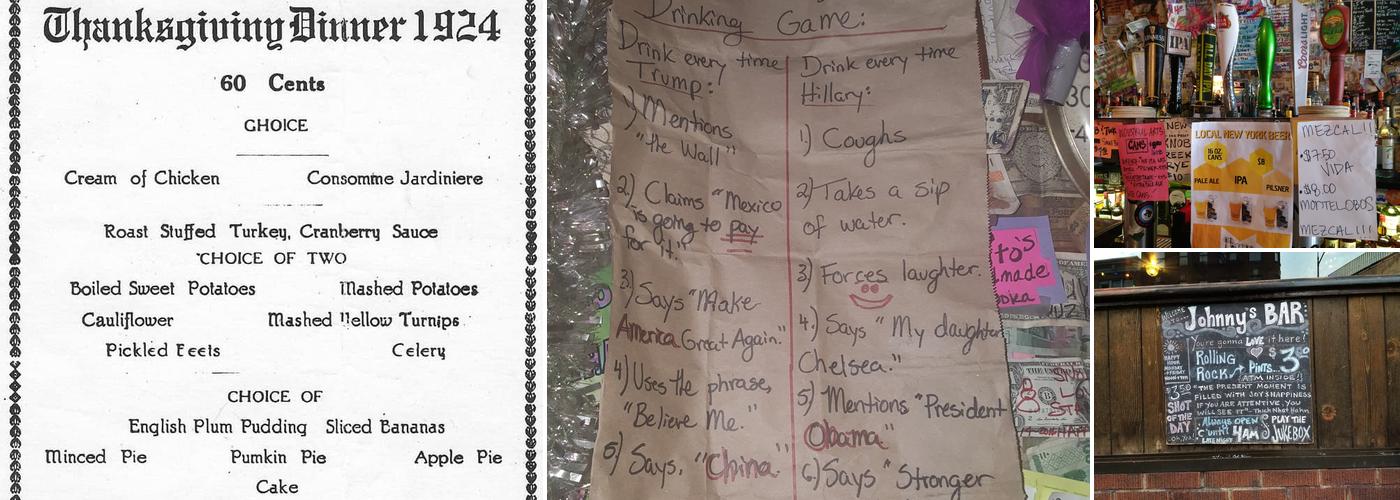 Thanksgiving Dinner 1924
60 Cents
CHOICE
Cream of Chicken Consomme Jardiniere
Roast Stuffed Turkey, Cranberry Sauce
CHOICE OF TWO
Boiled Sweet Potatoes Mashed Potatoes
Cauliflower Mashed Yellow Turnips
Pickled Beets Celery
CHOICE OF
English Plum Pudding Sliced Bananas
Minced Pie Pumkin Pie Apple Pie
Cake
Drinking Game:
Drink every time
Trump:
1) Mentions
"the Wall"
2) Claims "Mexico
is going to pay
for it."
3) Says "Make
America Great Again."
4) Uses the phrase,
"Believe Me."
5) Says, "China."
Drink every time
Hillary:
1.) Coughs
2) Takes a sip
of water.
3) Forces laughter.
4.) Says "My daughter
Chelsea."
5) Mentions "President
Obama"
6.) Says "Stronger
to's
made
IPA
Coors Light
INDUSTRIAL ARTS
CANS
NEW
KNOB
CREEK
RYE
$10
LOCAL NEW YORK BEER
16 OZ.
CANS
$8
PALE ALE IPA PILSNER
MEZCAL!!
•$7.50
VIDA
•$8.00
MONTELOBOS
MEZCAL!!!
WELCOME
TO
Johnny's BAR
You're gonna LOVE it here!
Rolling
Rock
Pints... $3.00
ATM INSIDE!!
HAPPY
HOUR
MONDAY
FRIDAY
$3.50
SHOT
OF THE
DAY
"THE PRESENT MOMENT IS
FILLED WITH JOY & HAPPINESS
IF YOU ARE ATTENTIVE, YOU
WILL SEE IT" - Thich Nhat Hahn
Always OPEN
'Until 4AM
LATE NIGHT
PLAY THE
JUKEBOX